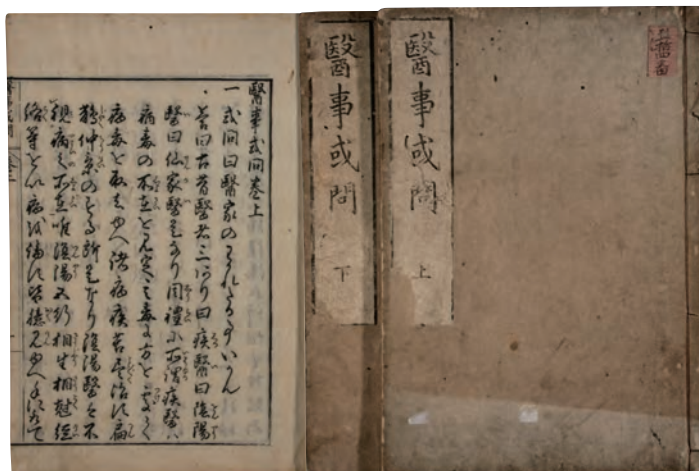 醫事或問 上
醫事或問 下
醫事或問巻上
一 或問曰醫家のわかれたる事いかん
答曰古昔醫者三つあり曰疾醫曰陰陽
醫曰仙家醫是なり周禮に所謂疾醫ハ
病毒の所在を見定其毒に方を処て
病毒を取去ゆへ諸病疾苦尽治す扁
鵲仲景のする所是なり陰陽醫ハ不
視病之所在唯陰陽五行相生相尅経
絡等を以病を論す皆臆見ゆへ手に取て